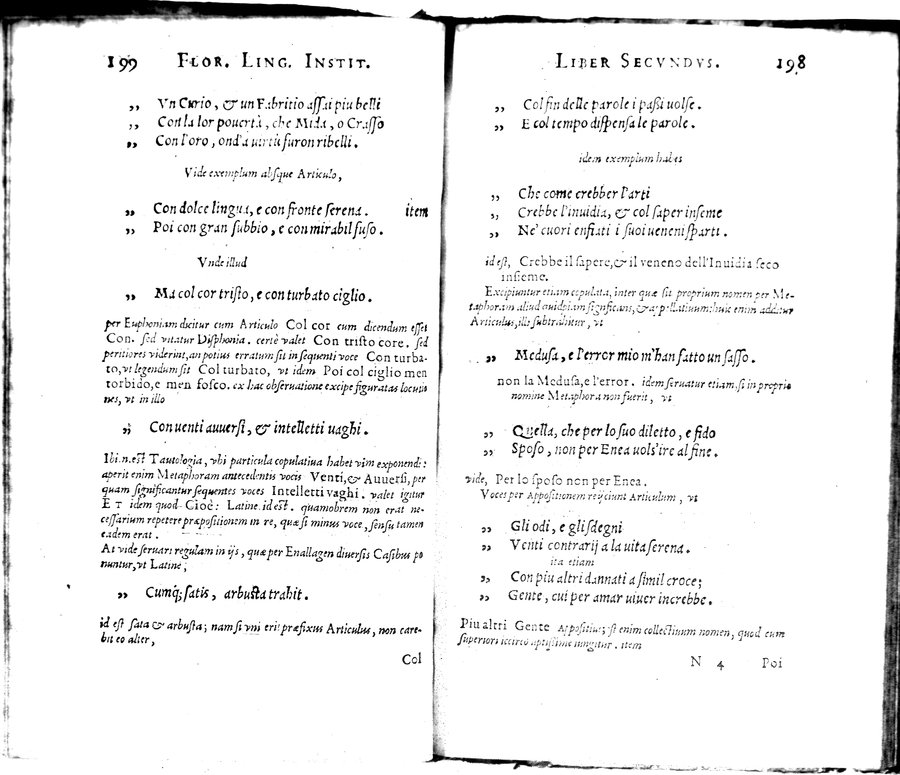 199 FLOR. LING. INSTIT.
„ Vn Curio, & un Fabritio assai piu belli
„ Con la lor pouertà, che Mida, o Crasso
„ Con l'oro, ond'a uirtù furon ribelli.
Vide exemplum absque Articulo,
„ Con dolce lingua, e con fronte serena. item
„ Poi con gran subbio, e con mirabil fuso.
Vnde illud
„ Ma col cor tristo, e con turbato ciglio.
per Euphoniam dicitur cum Articulo Col cor cum dicendum esset
Con. sed vitatur Disphonia. certè valet Con tristo core. sed
peritiores viderint, an potius erratum sit in sequenti voce Con turba-
to, vt legendum sit Col turbato, vt idem Poi col ciglio men
torbido, e men fosco. ex hac obseruatione excipe figuratas locutio
nes, vt in illo
„ Con uenti auuersi, & intelletti uaghi.
Ibi.n.est Tautologia, vbi particula copulatiua habet vim exponendi:
aperit enim Metaphoram antecedentis vocis Venti, & Auuersi, per
quam significantur sequentes voces Intelletti vaghi. valet igitur
ET idem quod Cioè: Latine. id est. quamobrem non erat ne-
cessarium repetere præpositionem in re, quæ si minus voce, sensu tamen
eadem erat.
At vide seruari regulam in ijs, quæ per Enallagen diuersis Casibus po
nuntur, vt Latine,
„ Cumq; satis, arbusta trahit.
id est sata & arbusta; nam si vni erit præfixus Articulus, non care-
bit eo alter,
Col
LIBER SECVNDVS. 198
„ Col fin delle parole i passi uolse.
„ E col tempo dispensa le parole.
idem exemplum habes
„ Che come crebber l'arti
„ Crebbe l'inuidia, & col saper inseme
„ Ne' cuori enfiati i suoi ueneni sparti.
id est, Crebbe il sapere, & il veneno dell'Inuidia seco
insieme.
Excipiuntur etiam copulata, inter quæ sit proprium nomen per Me-
taphoram aliud quidpiam significans, & appellatiuum: huic enim additur
Articulus, illi subtrahitur, vt
„ Medusa, e l'error mio m'han fatto un sasso.
non la Medusa, e l'error. idem seruatur etiam. si in proprio
nomine Metaphora non fuerit, vt
„ Quella, che per lo suo diletto, e fido
„ Sposo, non per Enea uols'ire al fine.
vide, Per lo sposo non per Enea.
Voces per Appositionem reijciunt Articulum, vt
„ Gli odi, e gli sdegni
„ Venti contrarij a la uita serena.
ita etiam
„ Con piu altri dannati a simil croce;
„ Gente, cui per amar uiuer increbbe.
Piu altri Gente Appositiue; si enim collectiuum nomen, quod cum
superiori iccirco aptissime iungitur. item
N 4 Poi